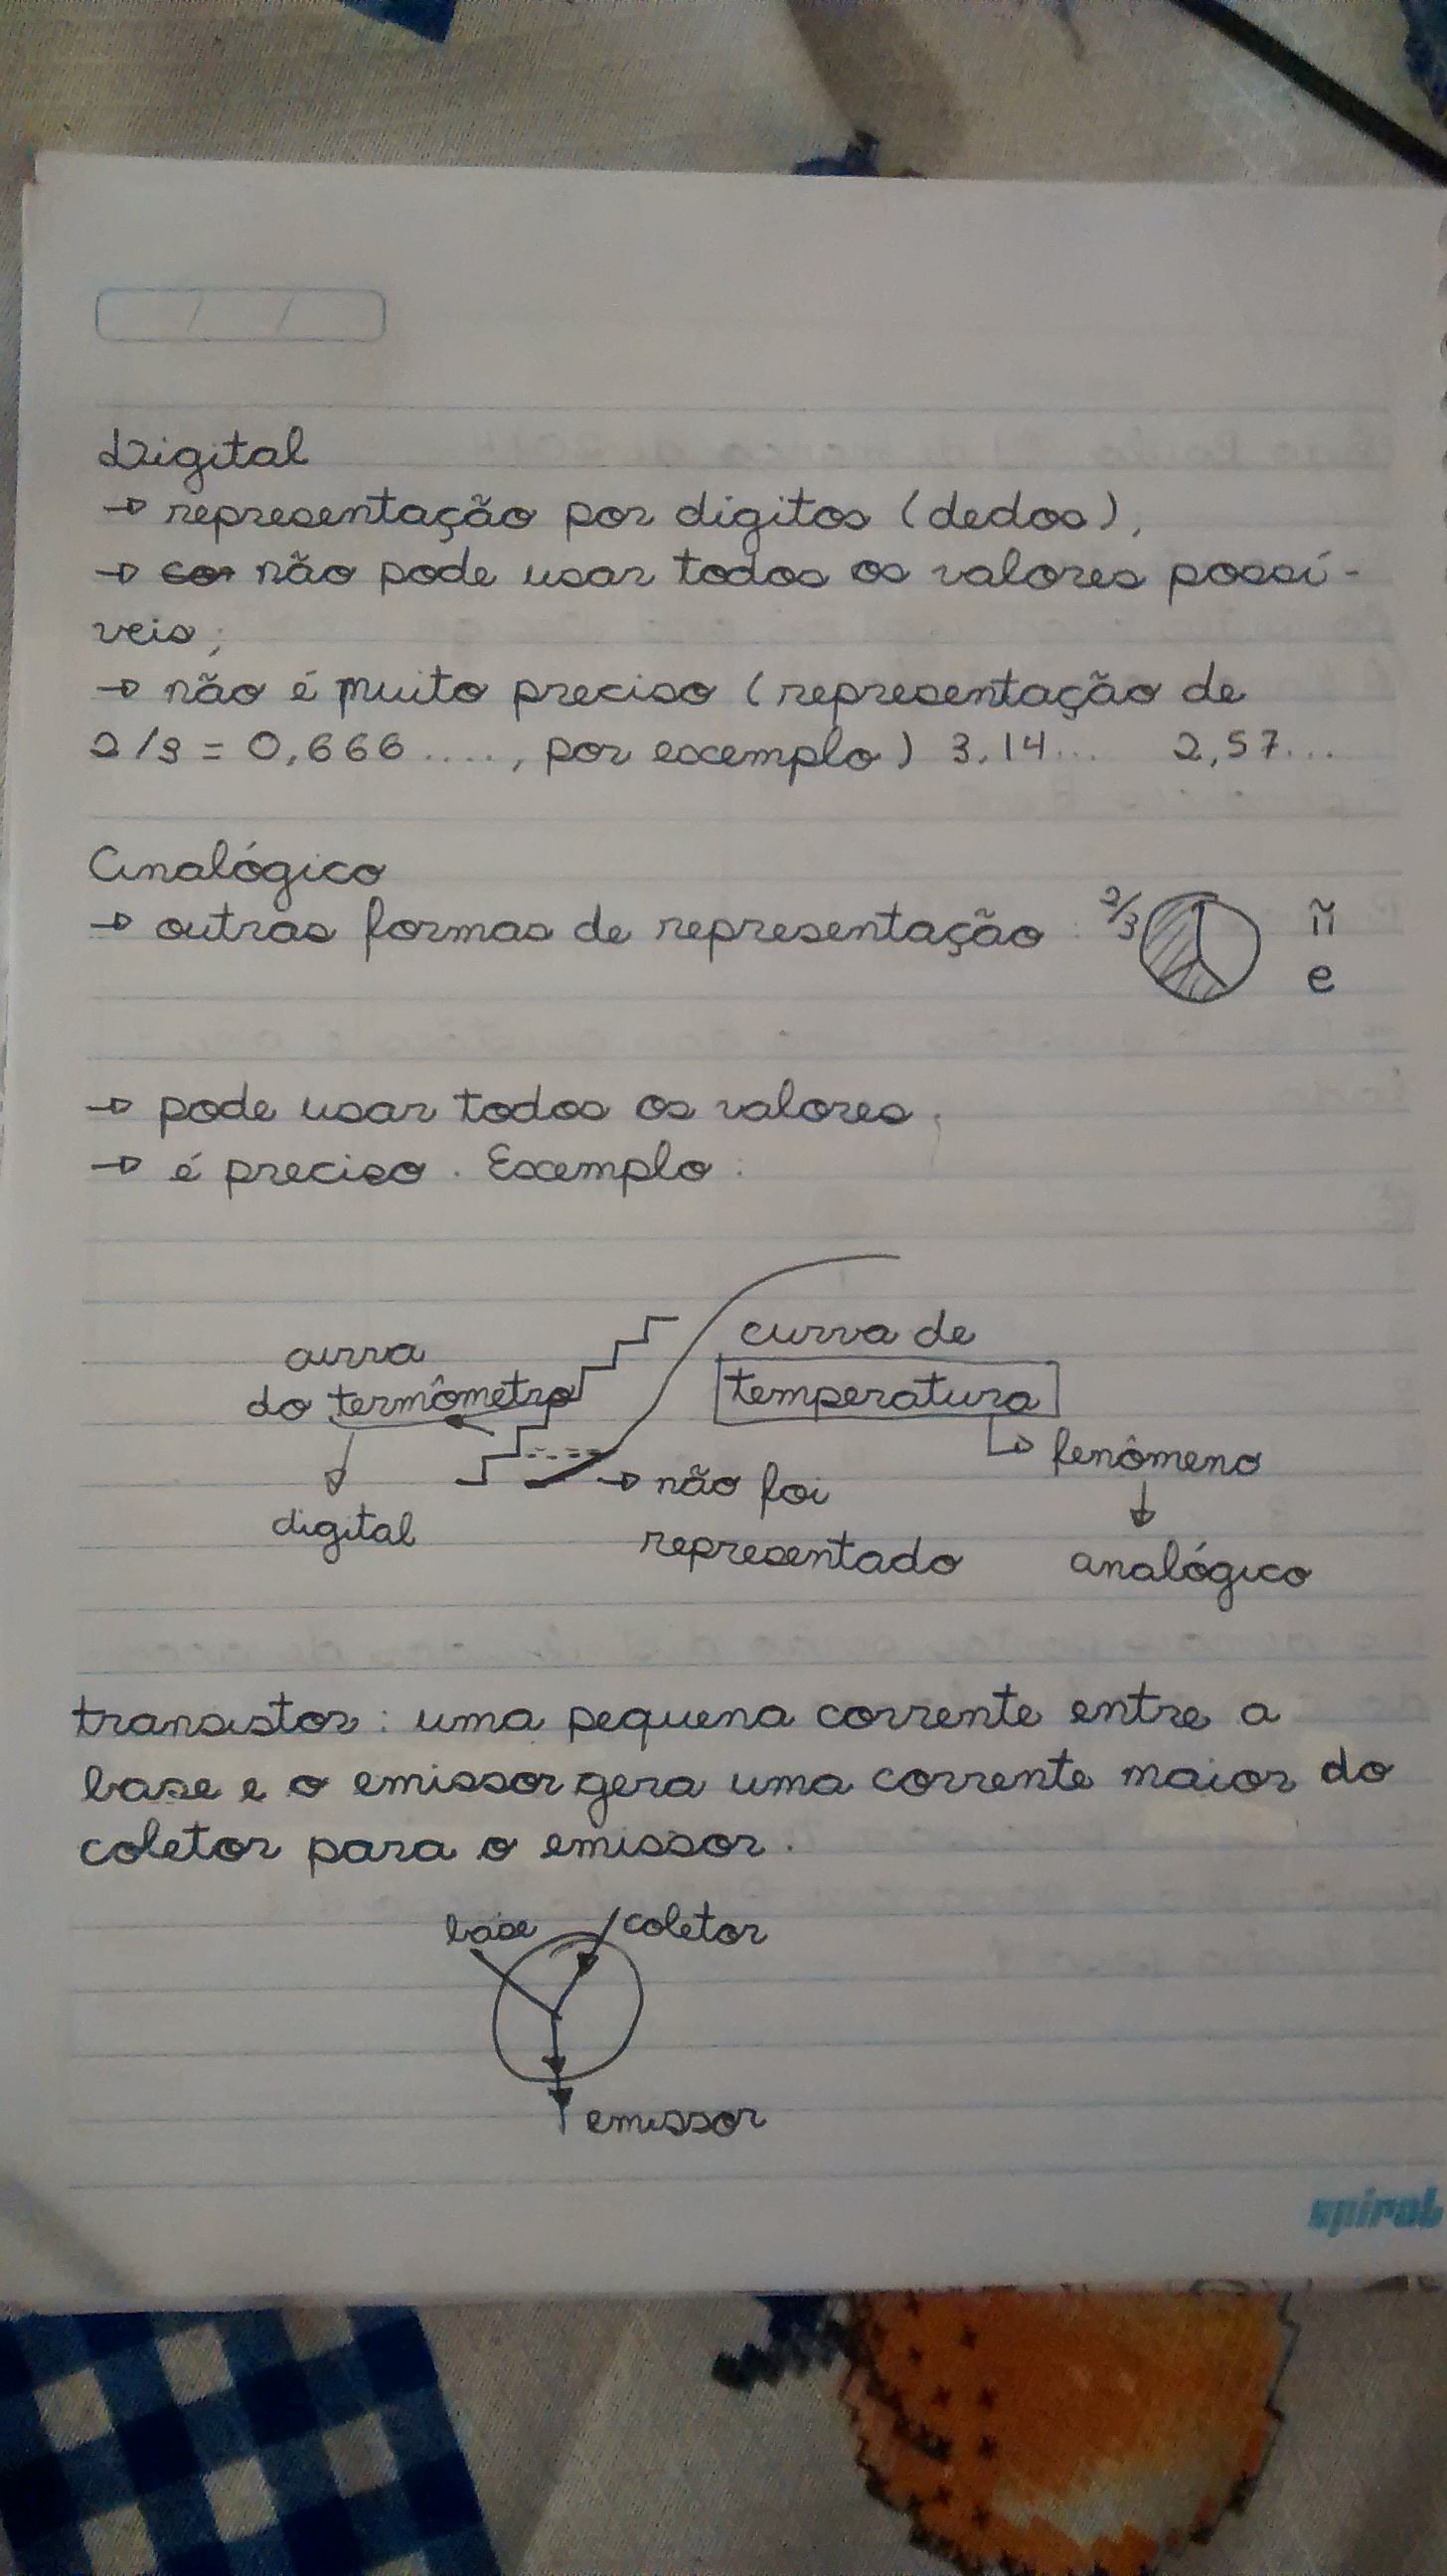 / /
Digital
→ representação por digitos (dedos),
→ ~~cor~~ não pode usar todos os valores possí-
veis;
→ não é muito preciso (representação de
2/3 = 0,666...., por exemplo) 3,14... 2,57...
Analógico
→ outras formas de representação : 2/3 π
e
→ pode usar todos os valores;
→ é preciso. Exemplo:
curva
do termômetro
digital
curva de
temperatura
fenômeno
analógico
→ não foi
representado
transistor: uma pequena corrente entre a
base e o emissor gera uma corrente maior do
coletor para o emissor.
base coletor
emissor
spiral